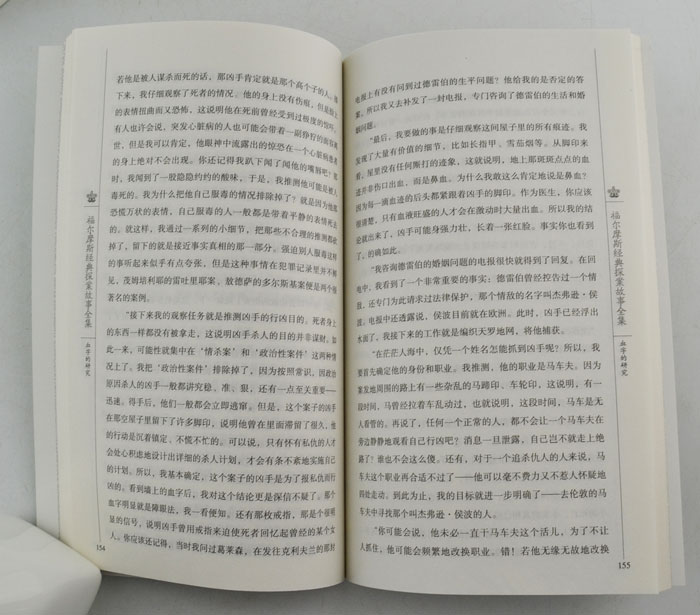 若他是被人谋杀而死的话，那凶手肯定就是那个高个子的人。接
下来，我仔细观察了死者的情况。他的身上没有伤痕，但是脸上
的表情扭曲而又恐怖，这说明他在死前曾受到过极度的惊吓。
有人也许会说，突发心脏病的人也可能会带着一副狰狞的面容离
世，但是我可以肯定，他眼神中流露出的惊恐在一个心脏病患者
的身上绝对不会出现。你还记得我趴下闻了闻他的嘴唇吧？那
时，我闻到了一股隐隐约约的酸味，于是，我推测他可能是被人
毒死的。我为什么把他自己服毒的情况排除掉了？就是因为他那
恐慌万状的表情，自己服毒的人一般都是带着平静的表情死去
的。就这样，我通过一系列的小细节，把那些不合理的推测都砍
掉了，留下的就是接近事实真相的那一部分。强迫别人服毒这样
的事听起来似乎有点夸张，但是这种事情在犯罪记录里并不鲜
见，茂姆培利耶的雷吐里耶案、敖德萨的多尔斯基案便是两个很
著名的案例。
“接下来我的观察任务就是推测凶手的行凶目的。死者身上
的东西一样都没有被拿走，这说明凶手杀人的目的并非谋财。如
此一来，可能性就集中在‘情杀案’和‘政治性案件’这两种情
况上了。我把‘政治性案件’排除掉了，因为按照常识，因政治
原因杀人的凶手一般都讲究稳、准、狠，还有一点至关重要——
迅速。得手后，他们一般都会立即逃窜。但是，这个案子的凶手
在那空屋子里留下了许多脚印，说明他曾在里面滞留了很久，他
的行动是沉着镇定、不慌不忙的。可以说，只有怀有私仇的人才
会处心积虑地设计出详细的杀人计划，才会有条不紊地实施自己
的计划。所以，我基本确定，这个案子的凶手是为了报私仇而行
凶的。看到墙上的血字后，我对这个结论更是深信不疑了。那个
血字明显就是障眼法，我一看便知。还有那枚戒指，那是个很明
显的信号，说明凶手曾用戒指来迫使死者回忆起曾经的某个女
人。你应该还记得，当时我问过葛莱森，在发往克利夫兰的那封
154
福尔摩斯经典探案故事全集
血字的研究
电报上有没有问到过德雷伯的生平问题？他给我的是否定的答
案。所以我又去补发了一封电报，专门咨询了德雷伯的生活和婚
姻问题。
“最后，我要做的事是仔细观察这间屋子里的所有痕迹。我
发现了大量有价值的细节，比如长指甲、雪茄烟等。从脚印来
看，屋里没有任何厮打的迹象，这就说明，地上那斑斑点点的血
迹并非伤口出血，而是鼻血。为什么我敢这么肯定地说是鼻血？
因为每一滴血迹的后头都紧跟着凶手的脚印。作为医生，你应该
很清楚，只有血液旺盛的人才会在激动时大量出血。所以我的结
论就出来了，凶手可能身强力壮，长着一张红脸。事实你也看到
了，的确如此。
“我咨询德雷伯的婚姻问题的电报很快就得到了回复。在回
电中，我看到了一个非常重要的事实：德雷伯曾经控告过一个情
敌，还专门为此请求过法律保护，那个情敌的名字叫杰弗逊·侯
波。电报中还透露说，侯波目前就在欧洲。此时，凶手已经浮出
水面了，我接下来的工作就是编织天罗地网，将他捕获。
“在茫茫人海中，仅凭一个姓名怎能抓到凶手呢？所以，我
要首先确定他的身份。我推测，他的职业是马车夫。因为，在
案发地周围的路上有一些杂乱的马蹄印、车轮印，这说明，有一
段时间，马曾经拉着车乱动过，也就说明，这段时间，马车是无
人看管的。再说了，任何一个正常的人，都不会让一个马车夫在
旁边静静地观看自己行凶吧？消息一旦泄露，自己岂不就走上绝
路了？谁也不会这么傻。还有，对于一个追杀仇人的人来说，马
车夫这个职业再合适不过了——他可以毫不费力又不惹人怀疑地
四处走动。到此为止，我的目标就进一步明确了——去伦敦的马
车夫中寻找那个叫杰弗逊·侯波的人。
“你可能会说，他未必一直干马车夫这个活儿，为了不让
人抓住，他可能会频繁地改换职业。错！若他无缘无故地改换
155
福尔摩斯经典探案故事全集
血字的研究